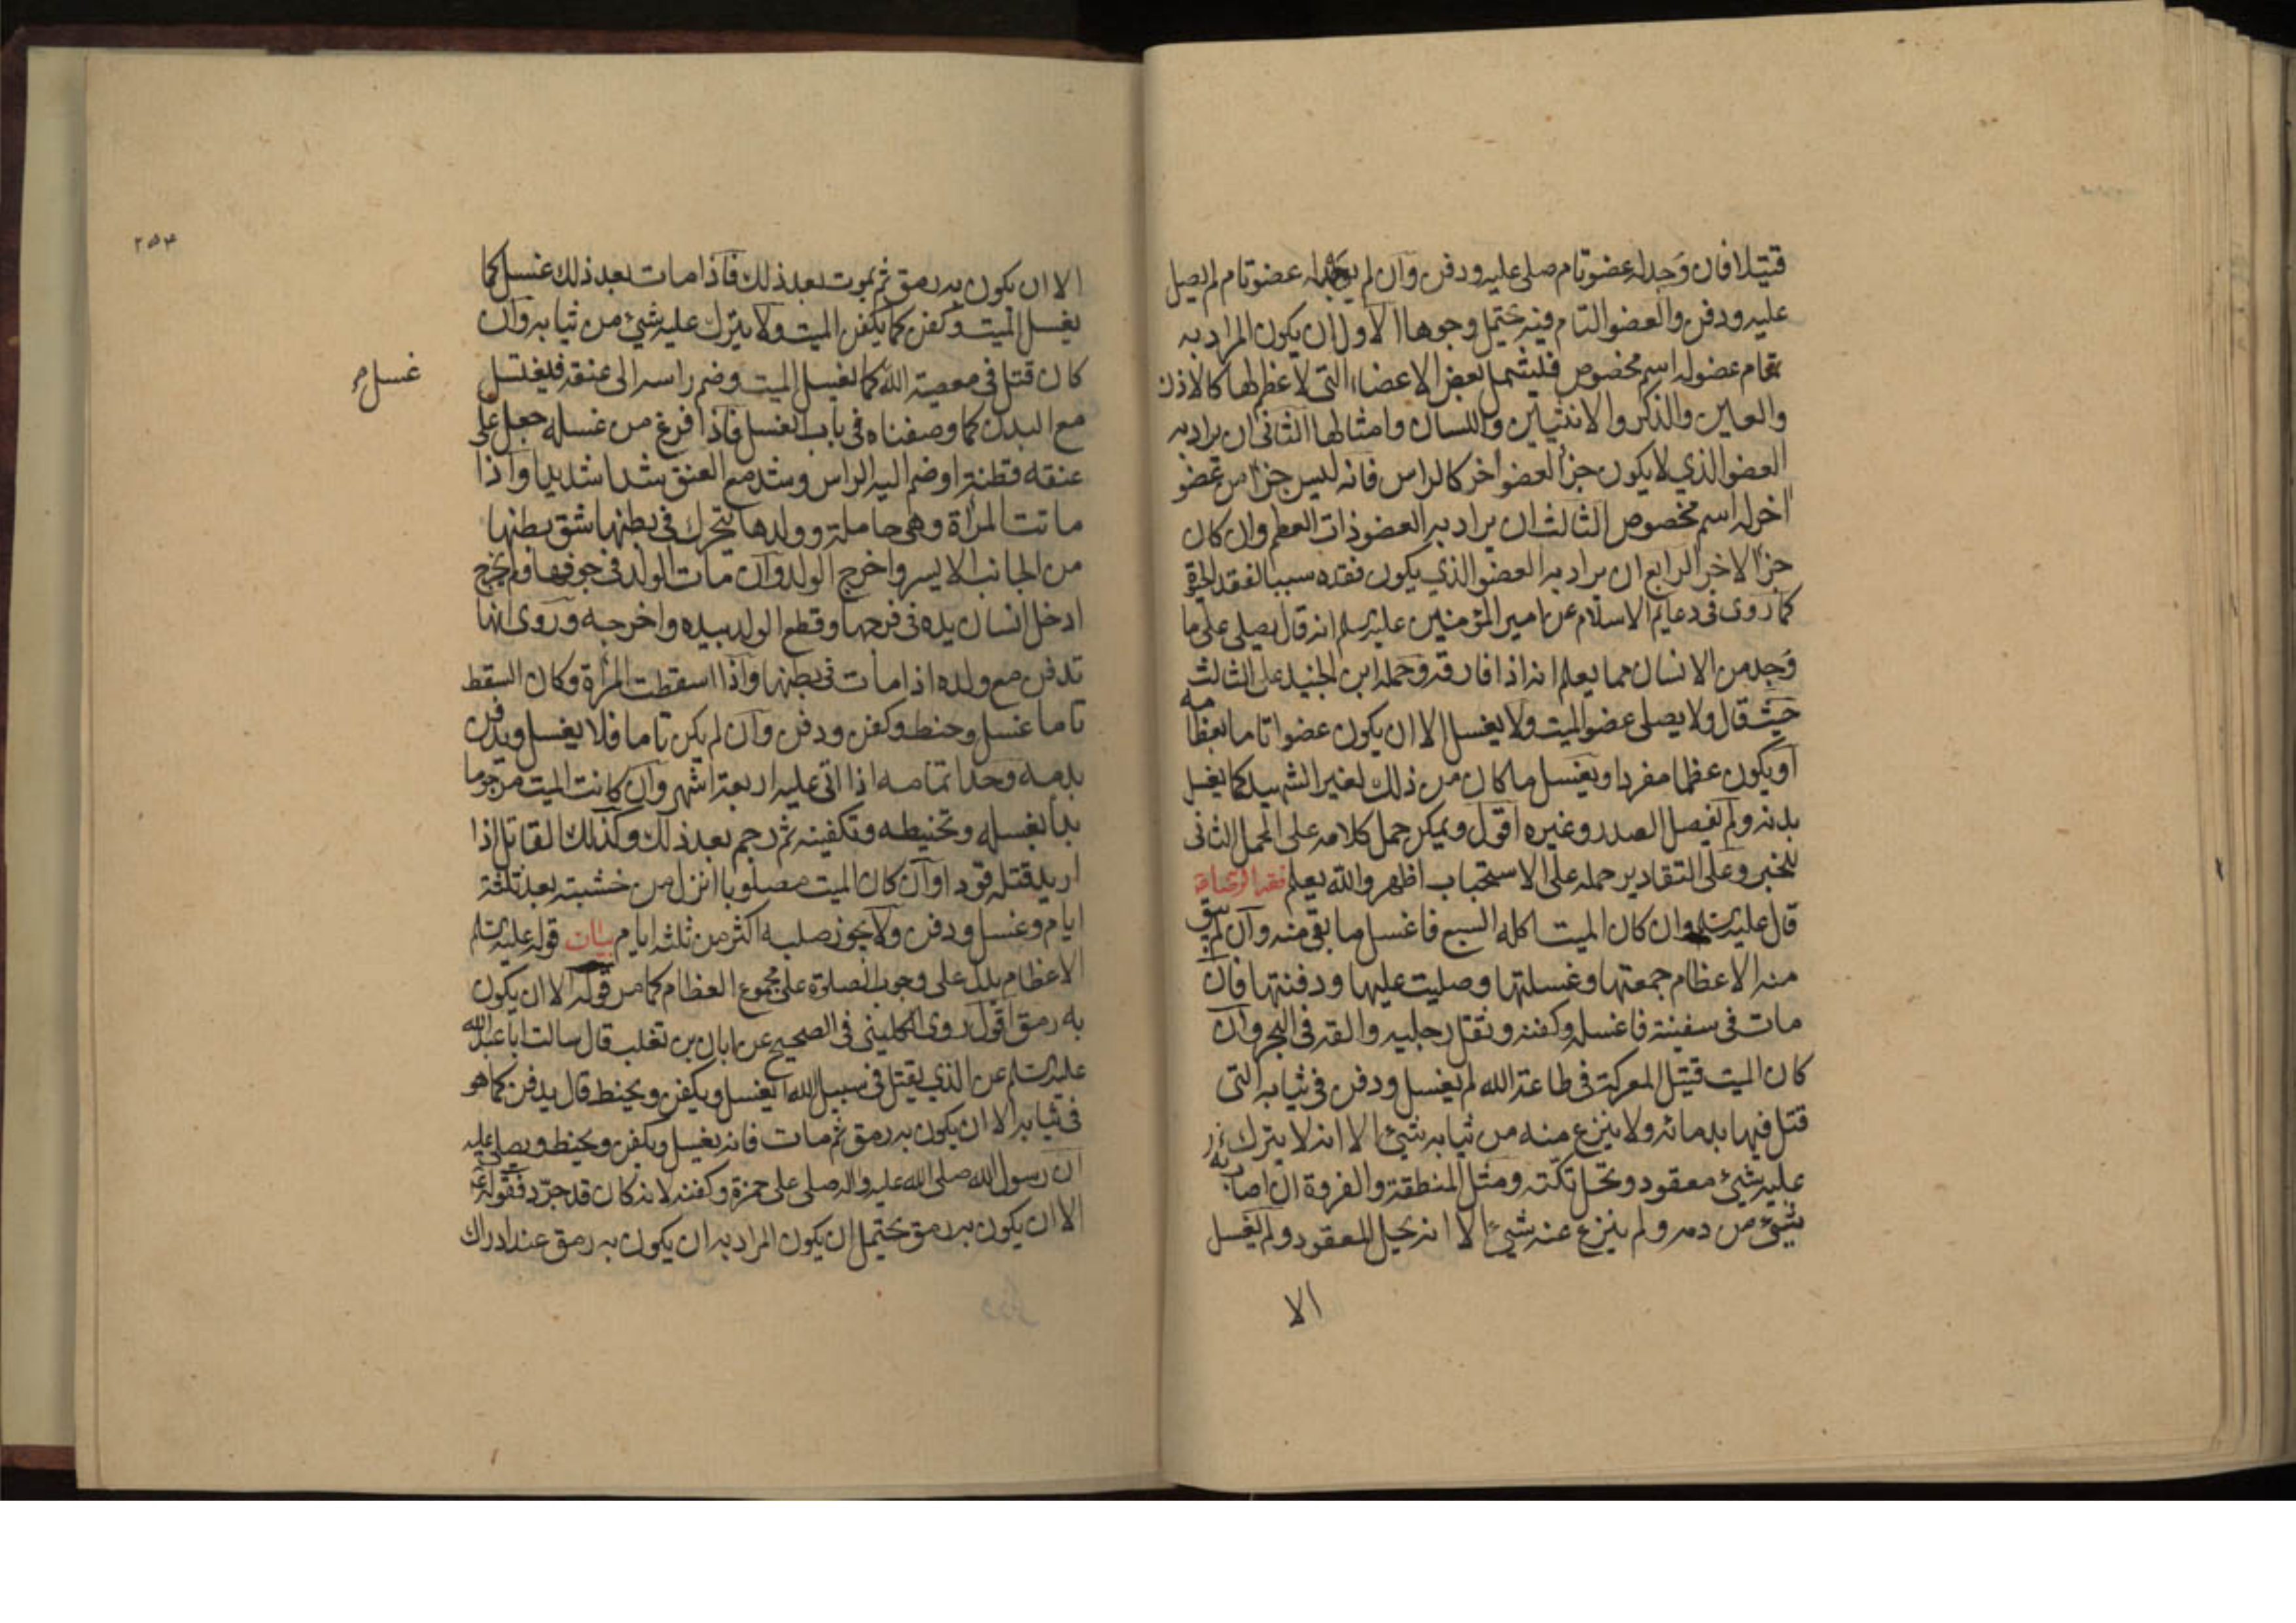 قتيلا فان وجد له عضو تام صلى عليه ودفن وان لم يوجد له عضو تام لم يصل
عليه ودفن والعضو التام فيه يحتمل وجوها الاول ان يكون المراد به
تمام عضو له اسم مخصوص فليشمل بعض الاعضاء التى لا عظم لها كالاذن
والعين والذكر والانثيين واللسان وامثالها الثانى ان يراد به
العضو الذي لا يكون جزأ لعضو اخر كالراس فانه ليس جزأ من عضو
اخر له اسم مخصوص الثالث ان يراد به العضو ذات العظم وان كان
جزأ لاخر الرابع ان يراد به العضو الذي يكون فقده سببا لفقد الحيوة
كما روى في دعايم الاسلام عن امير المؤمنين عليه السلم انه قال يصلى على ما
وجد من الانسان مما يعلم انه اذا فارقه وحمله ابن الجنيد على الثالث
حيث قال ولا يصلى عضو الميت ولا يغسل الا ان يكون عضوا تاما بعظامه
او يكون عظما مفردا ويغسل ما كان من ذلك لغير الشهيد كما يغسل
بدنه ولم يفصل الصدر وغيره اقول ويمكن حمل كلامه على المحمل الثانى
للخبر وعلى التقادير حمله على الاستحباب اظهر والله يعلم فقه الرضا
قال عليه السلم وان كان الميت اكله السبع فاغسل ما بقى منه وان لم يبق
منه الا عظام جمعتها وغسلتها وصليت عليها ودفنتها فان
مات فى سفينة فاغسله وكفنه وثقل رجليه والقه فى البحر وان
كان الميت قتيل المعركة فى طاعة الله لم يغسل ودفن فى ثيابه التى
قتل فيها بدمائه ولا ينزع منه من ثيابه شئ الا انه لا يترك
عليه شئ معقود وتحل تكته ومثل المنطقة والفروة ان اصابه
شئ من دمه ولم ينزع عنه شئ الا انه يحل المعقود ولم يغسل
الا
٢٥٣
الا ان يكون به رمق ثم يموت بعد ذلك فاذا مات بعد ذلك غسل كما
يغسل الميت وكفن كما يكفن الميت ولا يترك عليه شئ من ثيابه وان
كان قتل فى معصية الله كما يغسل الميت وضم راسه الى عنقه فليغتسل
غسل
مع البدن كما وصفناه فى باب الغسل فاذا فرغ من غسله جعل على
عنقه قطنة او ضم اليه الراس وشد مع العنق شدا شديدا واذا
ماتت المرأة وهى حاملة وولدها يتحرك فى بطنها شق بطنها
من الجانب الايسر واخرج الولد وان مات الولد فى جوفها ولم يخرج
ادخل انسان يده فى فرجها وقطع الولد بيده واخرجه وروى انها
تدفن مع ولده اذا مات فى بطنها واذا اسقطت المرأة وكان السقط
تاما غسل وحنط وكفن ودفن وان لم يكن تاما فلا يغسل ويدفن
بدمه وحد اتمامه اذا اتى عليه اربعة اشهر وان كانت الميت مرجوما
بدأ بغسله وتحنيطه وتكفينه ثم رجم بعد ذلك وكذلك القاتل اذا
اريد قتله قودا وان كان الميت مصلوبا انزل من خشبته بعد ثلثة
ايام وغسل ودفن ولا يجوز صلبه اكثر من ثلثة ايام بيان قوله عليه السلم
الا عظام يدل على وجوب الصلوة على مجموع العظام كما مر قوله الا ان يكون
به رمق اقول روى الكلينى فى الصحيح عن ابان بن تغلب قال سالت ابا عبد الله
عليه السلم عن الذي يقتل فى سبيل الله ايغسل ويكفن ويحنط قال يدفن كما هو
فى ثيابه الا ان يكون به رمق ثم مات فانه يغسل ويكفن ويحنط ويصلى عليه
ان رسول الله صلى الله عليه واله صلى على حمزة وكفنه لانه كان قد جرد فقوله
الا ان يكون به رمق يحتمل ان يكون المراد به ان يكون به رمق عند ادراك